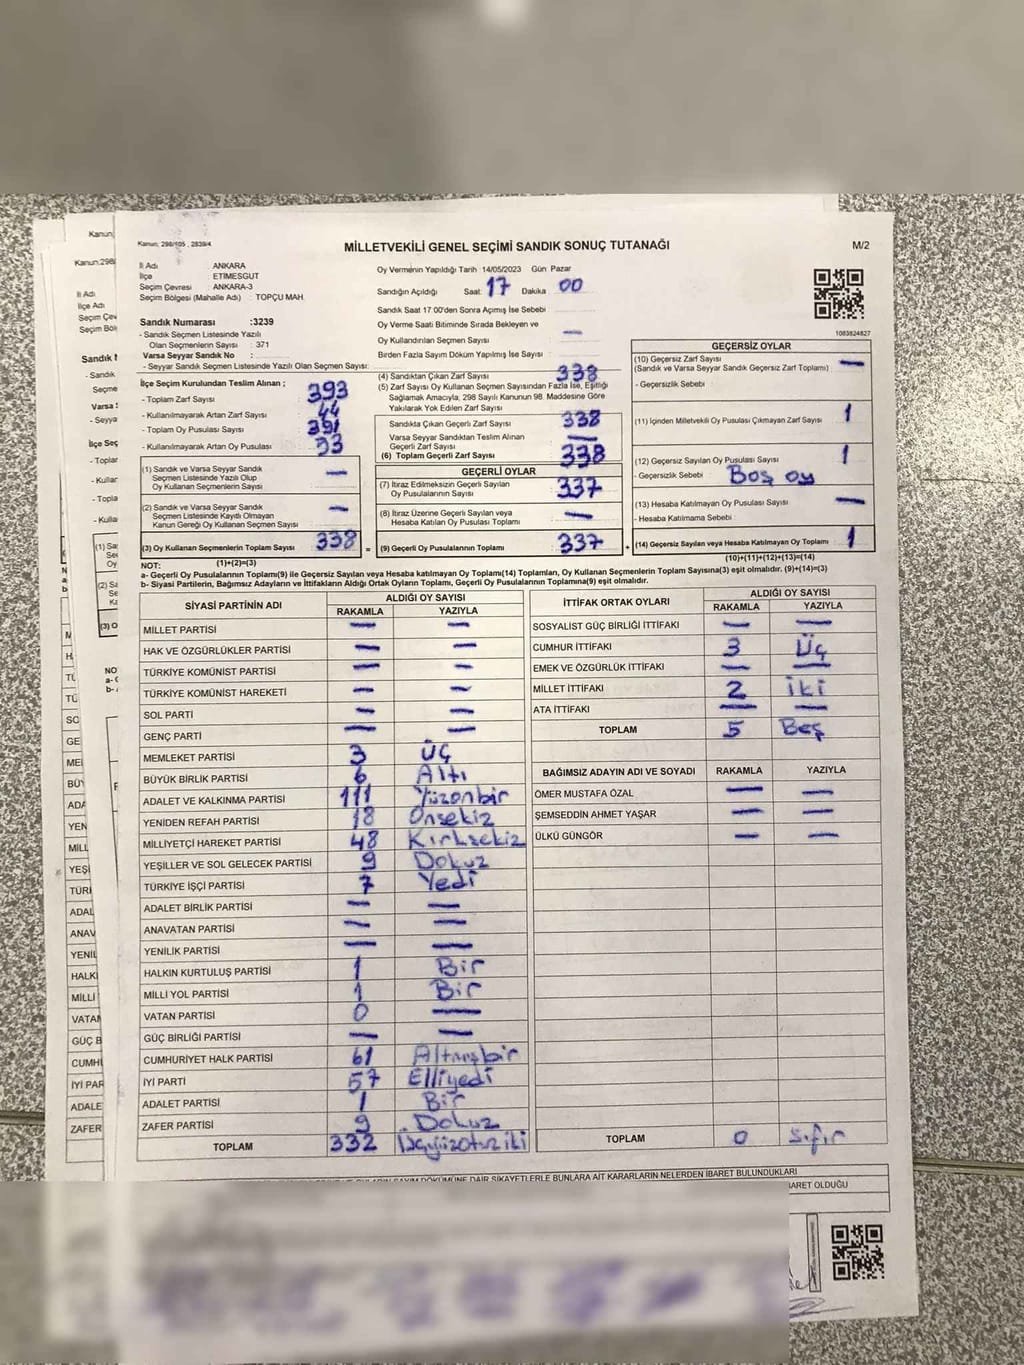 Kanun; 298/105 , 2839/4
MİLLETVEKİLİ GENEL SEÇİMİ SANDIK SONUÇ TUTANAĞI
M/2
İl Adı ANKARA
İlçe ETİMESGUT
Seçim Çevresi : ANKARA-3
Seçim Bölgesi (Mahalle Adı) : TOPÇU MAH.
Sandık Numarası :3239
- Sandık Seçmen Listesinde Yazılı
Olan Seçmenlerin Sayısı : 371
Varsa Seyyar Sandık No :
- Seyyar Sandık Seçmen Listesinde Yazılı Olan Seçmen Sayısı:
Oy Vermenin Yapıldığı Tarih 14/05/2023 Gün Pazar
Sandığın Açıldığı Saat: 17 Dakika 00
Sandık Saat 17.00'den Sonra Açımış İse Sebebi
Oy Verme Saati Bitiminde Sırada Bekleyen ve
Oy Kullandırılan Seçmen Sayısı —
Birden Fazla Sayım Döküm Yapılmış İse Sayısı
1083824827
İlçe Seçim Kurulundan Teslim Alınan ;
- Toplam Zarf Sayısı 393
- Kullanılmayarak Artan Zarf Sayısı 44
- Toplam Oy Pusulası Sayısı 391
- Kullanılmayarak Artan Oy Pusulası 53
(1) Sandık ve Varsa Seyyar Sandık
Seçmen Listesinde Yazılı Olup
Oy Kullanan Seçmenlerin Sayısı —
(2) Sandık ve Varsa Seyyar Sandık
Seçmen Listesinde Kayıtlı Olmayan
Kanun Gereği Oy Kullanan Seçmen Sayısı —
(3) Oy Kullanan Seçmenlerin Toplam Sayısı 338 =
(1)+(2)=(3)
(4) Sandıktan Çıkan Zarf Sayısı 338
(5) Zarf Sayısı Oy Kullanan Seçmen Sayısından Fazla İse, Eşitliği
Sağlamak Amacıyla, 298 Sayılı Kanunun 98. Maddesine Göre
Yakılarak Yok Edilen Zarf Sayısı
Sandıkta Çıkan Geçerli Zarf Sayısı 338
Varsa Seyyar Sandıktan Teslim Alınan
Geçerli Zarf Sayısı —
(6) Toplam Geçerli Zarf Sayısı 338
GEÇERLİ OYLAR
(7) İtiraz Edilmeksizin Geçerli Sayılan
Oy Pusulalarının Sayısı 337
(8) İtiraz Üzerine Geçerli Sayılan veya
Hesaba Katılan Oy Pusulası Toplamı —
(9) Geçerli Oy Pusulalarının Toplamı 337 +
GEÇERSİZ OYLAR
(10) Geçersiz Zarf Sayısı
(Sandık ve Varsa Seyyar Sandık Geçersiz Zarf Toplamı) —
- Geçersizlik Sebebi
(11) İçinden Milletvekili Oy Pusulası Çıkmayan Zarf Sayısı 1
(12) Geçersiz Sayılan Oy Pusulası Sayısı 1
- Geçersizlik Sebebi Boş oy
(13) Hesaba Katılmayan Oy Pusulası Sayısı —
- Hesaba Katılmama Sebebi
(14) Geçersiz Sayılan veya Hesaba Katılmayan Oy Toplamı 1
(10)+(11)+(12)+(13)=(14)
NOT:
a- Geçerli Oy Pusulalarının Toplamı(9) ile Geçersiz Sayılan veya Hesaba katılmayan Oy Toplamı(14) Toplamları, Oy Kullanan Seçmenlerin Toplam Sayısına(3) eşit olmalıdır. (9)+(14)=(3)
b- Siyasi Partilerin, Bağımsız Adayların ve İttifakların Aldığı Ortak Oyların Toplamı, Geçerli Oy Pusulalarının Toplamına(9) eşit olmalıdır.
SİYASİ PARTİNİN ADI ALDIĞI OY SAYISI
RAKAMLA YAZIYLA
MİLLET PARTİSİ — —
HAK VE ÖZGÜRLÜKLER PARTİSİ — —
TÜRKİYE KOMÜNİST PARTİSİ — —
TÜRKİYE KOMÜNİST HAREKETİ — —
SOL PARTİ — —
GENÇ PARTİ — —
MEMLEKET PARTİSİ 3 Üç
BÜYÜK BİRLİK PARTİSİ 6 Altı
ADALET VE KALKINMA PARTİSİ 111 Yüzonbir
YENİDEN REFAH PARTİSİ 18 Onsekiz
MİLLİYETÇİ HAREKET PARTİSİ 48 Kırksekiz
YEŞİLLER VE SOL GELECEK PARTİSİ 9 Dokuz
TÜRKİYE İŞÇİ PARTİSİ 7 Yedi
ADALET BİRLİK PARTİSİ — —
ANAVATAN PARTİSİ — —
YENİLİK PARTİSİ — —
HALKIN KURTULUŞ PARTİSİ 1 Bir
MİLLİ YOL PARTİSİ 1 Bir
VATAN PARTİSİ 0 —
GÜÇ BİRLİĞİ PARTİSİ — —
CUMHURİYET HALK PARTİSİ 61 Altmışbir
İYİ PARTİ 57 Elliyedi
ADALET PARTİSİ 1 Bir
ZAFER PARTİSİ 9 Dokuz
TOPLAM 332 Üçyüzotuziki
İTTİFAK ORTAK OYLARI ALDIĞI OY SAYISI
RAKAMLA YAZIYLA
SOSYALİST GÜÇ BİRLİĞİ İTTİFAKI — —
CUMHUR İTTİFAKI 3 Üç
EMEK VE ÖZGÜRLÜK İTTİFAKI — —
MİLLET İTTİFAKI 2 İki
ATA İTTİFAKI — —
TOPLAM 5 Beş
BAĞIMSIZ ADAYIN ADI VE SOYADI RAKAMLA YAZIYLA
ÖMER MUSTAFA ÖZAL — —
ŞEMSEDDİN AHMET YAŞAR — —
ÜLKÜ GÜNGÖR — —
TOPLAM 0 Sıfır
DÖKÜMÜNE DAİR ŞİKAYETLERLE BUNLARA AİT KARARLARIN NELERDEN İBARET BULUNDUKLARI
İBARET OLDUĞU